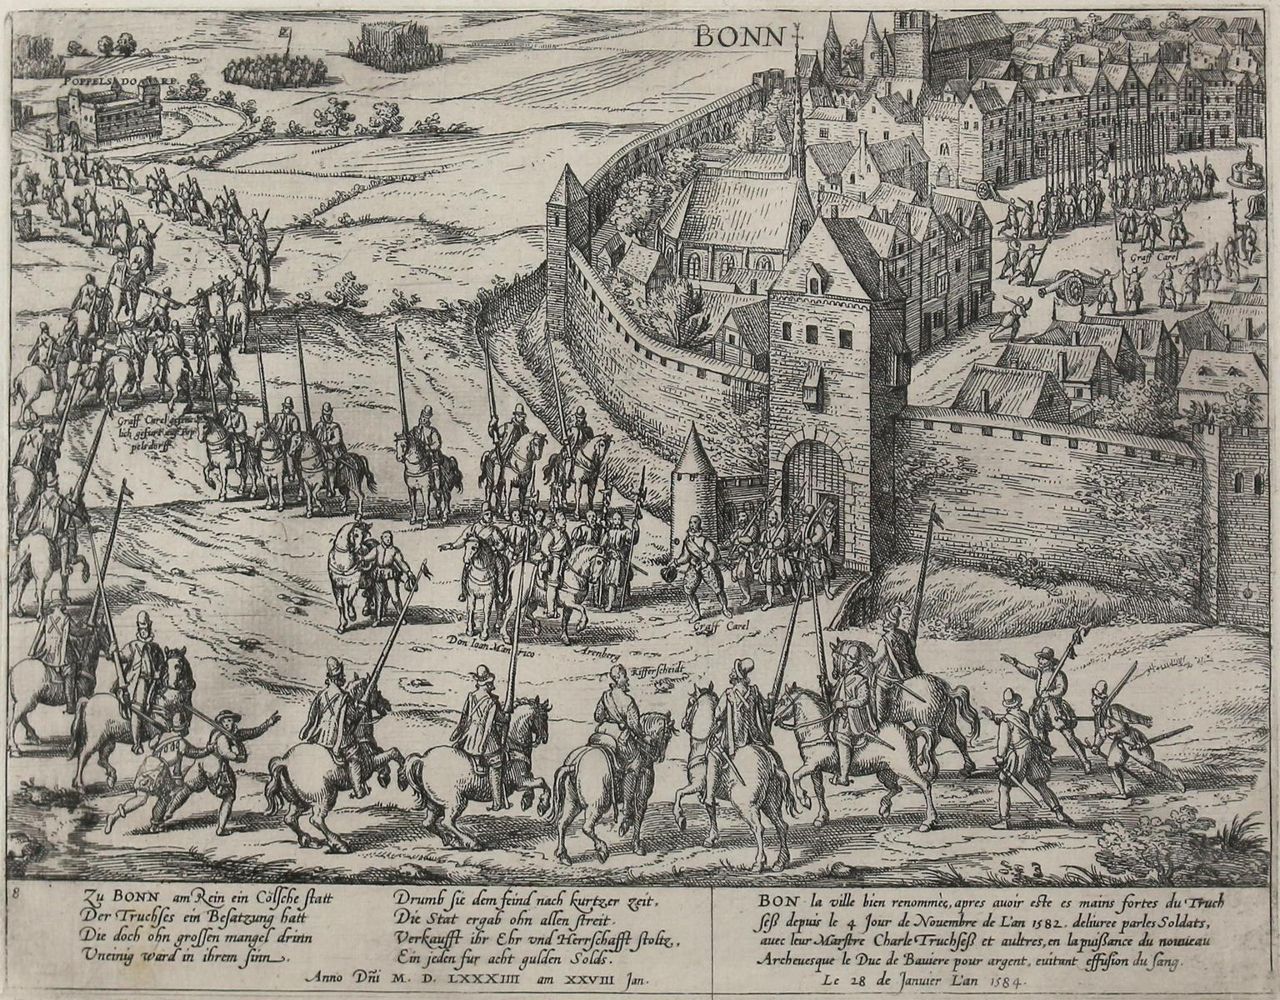 BONN
POPPELSDOARP.
Graff Carel
Graff Carel gefen
lich gefürt auf Pop
pelsdorff
Graff Carel
Don Ioan Manrico
Arenberg
Rifferscheidt
8
Zu BONN am Rein ein Cölsche statt
Der Truchses ein Besatzung hatt
Die doch ohn grossen mangel drinn
Vneinig ward in ihrem sinn.
Drumb sie dem feind nach kurtzer zeit,
Die Stat ergab ohn allen streit.
Verkaufft ihr Ehr vnd Herrschafft stoltz,
Ein jeden für acht gulden Solds.
Anno Dñi M. D. LXXXIIII am XXVIII Jan.
BON la ville bien renommée, apres auoir este es mains fortes du Truch
seß depuis le 4 Jour de Nouembre de L'an 1582. deliuree par les Soldats,
auec leur Marstre Charle Truchseß et aultres, en la puissance du nouueau
Archeuesque le Duc de Bauiere pour argent, euitant effusion du sang.
Le 28 de Januier L'an 1584.